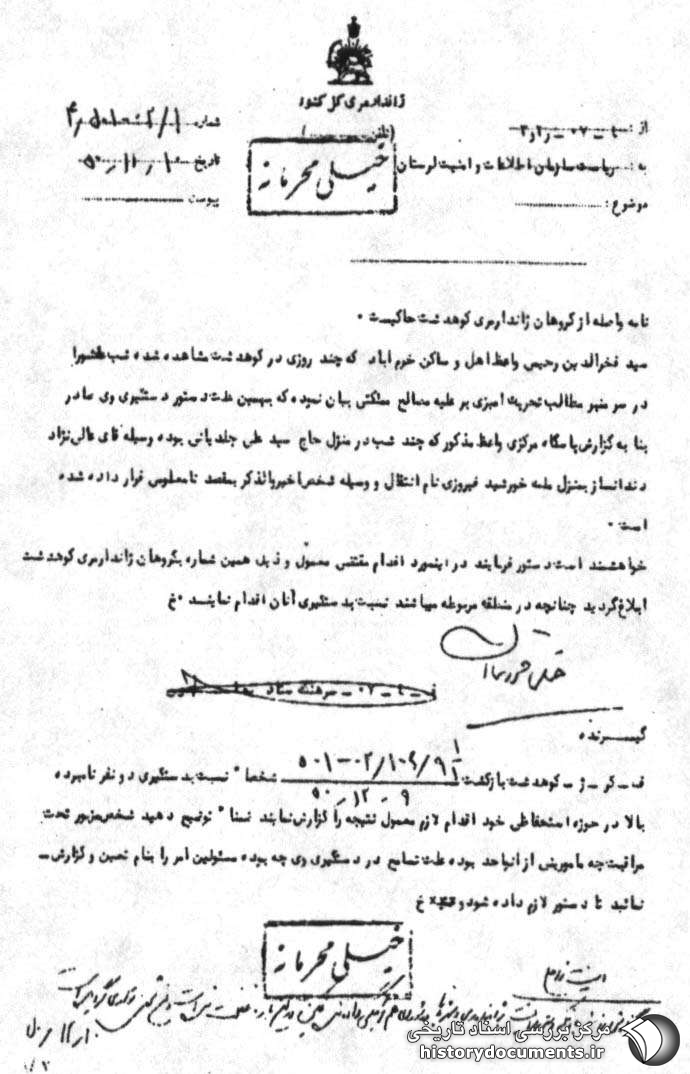 ژاندارمری کل کشور
(تلفن)
خیلی محرمانه
از :
به : ریاست سازمان اطلاعات و امنیت لرستان
موضوع :
شماره
تاریخ ۵۰/۱۱/۱۰
پیوست
نامه واصله از گروهان ژاندارمری کوهدشت حاکیست ۰
سید فخرالدین رحیمی واعظ اهل و ساکن خرم آباد که چند روزی در کوهدشت مشاهده شده شب عاشورا
در سر منبر مطالب تحریک آمیزی بر علیه مصالح مملکتی بیان نموده که بهمین علت دستور دستگیری وی صادر
بنا به گزارش پاسگاه مرکزی واعظ مذکور که چند شب در منزل حاج سید علی بوده وسیله آقای عالی نژاد
دندانساز بمنزل خورشید فیروزی نام انتقال و وسیله شخص اخیرالذکر بمقصد نامعلومی فرار داده شده
است ۰
خواهشمند است دستور فرمایند در اینمورد اقدام مقتضی معمول و ذیل همین شماره بگروهان ژاندارمری کوهدشت
ابلاغ گردید چنانچه در منطقه مربوطه میباشند نسبت بدستگیری آنان اقدام نمایند ۰خ
گیرنده
ف ـ گر ـ ژ ـ کوهدشت بازگشت ۵۰۱-۰۲/۱۰۴/۹۱ شخصا" نسبت بدستگیری دو نفر نامبرده
۵۰-۱۲-۹
بالا در حوزه استحفاظی خود اقدام لازم معمول نتیجه را گزارش نمایند ضمنا" توضیح دهید شخص مزبور تحت
مراقبت چه مامورینی از آنواحد بوده علت تسامح در دستگیری وی چه بوده مسئولین امر را بنام تعیین و گزارش ـ
نمائید تا دستور لازم داده شود خ
خیلی محرمانه
مرکز بررسی اسناد تاریخی
historydocuments.ir